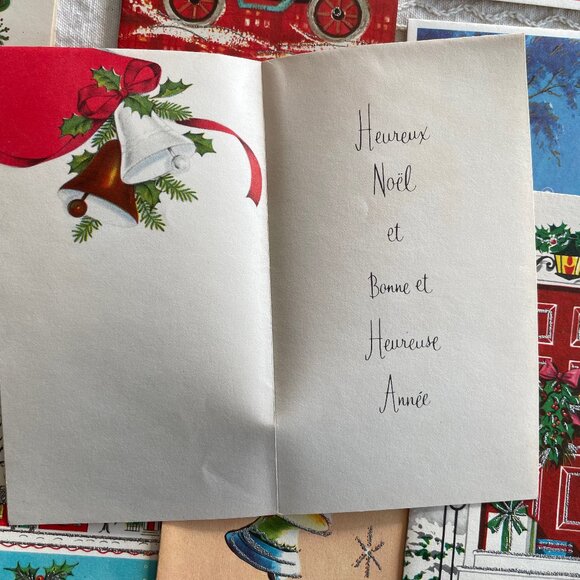 Heureux
Noël
et
Bonne et
Heureuse
Année